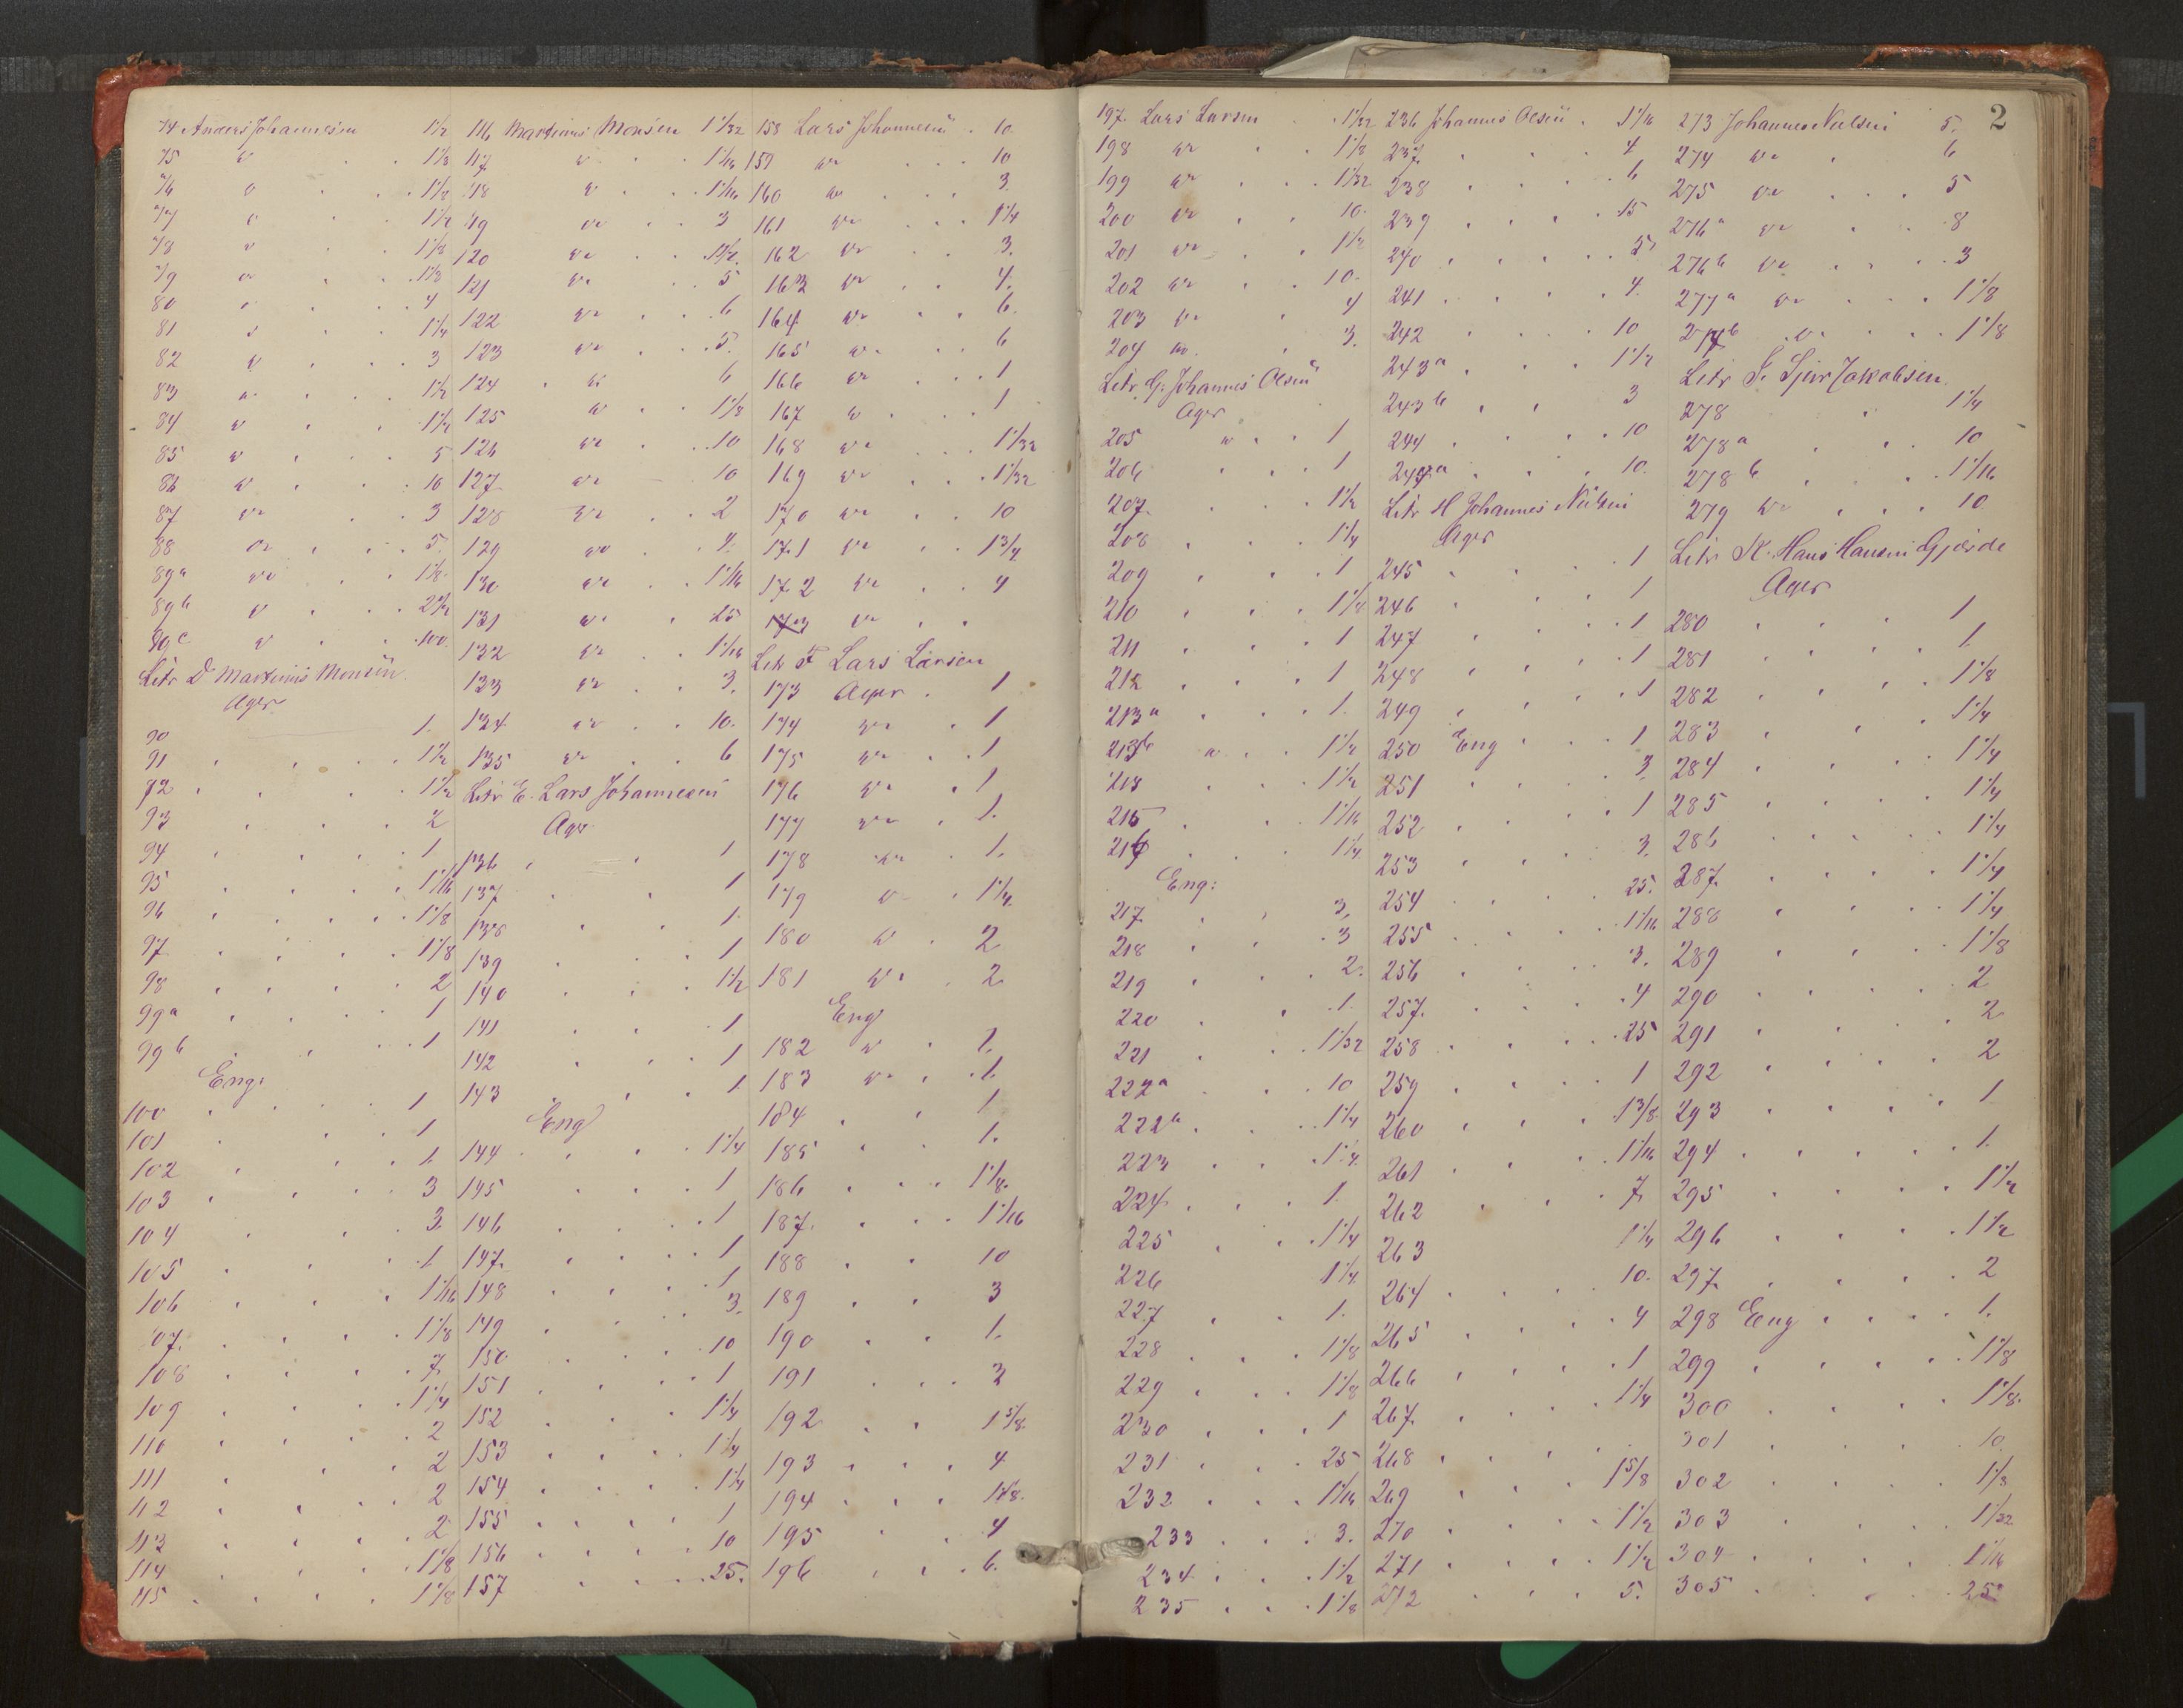 74 Anders Johannesen 1 1/2
75 " 1 1/8
76 " 1 1/8
77 " 1 1/2
78 " 1 1/8
79 " 1 1/8
80 " 4
81 " 1 1/4
82 " 3
83 " 1 1/2
84 " 1 1/2
85 " 5
86 " 10
87 " 3
88 " 5.
89a " 1 1/8
89b " 2 1/2
89c " 100
Litr D Martinus Monsen
Ager
90 1.
91 1 1/2
92 1 1/2
93 2
94 1
95 1 1/16
96 1 1/8
97 1 1/8
98 2
99a 1
99b 1
Eng:
100 1
101 1
102 1.
103 3
104 3
105 1
106 1 1/16
107. 1 1/8
108 7.
109 1 1/4
110 2
111 2
112 2
113 2
114 1 1/8
115 1 1/8
116 Martinus Monsen 1 1/32
117 " 1 1/16
118 " 1 1/16
119 " 3
120 " 1 1/2.
121 " 5
122 " 6
123 " 5.
124 " 6
125 " 1 1/8
126 " 10
127 " 10
128 " 2
129 " 4.
130 " 1 1/16
131 " 25
132 " 1 1/16
133 " 3.
134 " 10.
135 " 6
Litr E. Lars Johannesen
Ager
136 1
137 1
138 1.
139 1
140 1 1/2
141 1
142 1
143 1
Eng
144 1 1/4
145 1
146 1
147. 1
148 1
149 3.
150 10
151 1
152 1 1/4
153 1 1/4
154 1 1/4
155 1
156 10
157 25.
158 Lars Johannesen 10.
159 " 10
160 " 3
161 " 1 1/4
162 " 3.
163 " 4.
164 " 6.
165 " 6
166 " 1
167 " 1
168 " 1 1/32
169 " 1 1/32
170 " 10
171 " 1 3/4
172 " 4
173 "
Litr F Lars Larsen
173 Ager 1
174 " 1
175 " 1
176 " 1
177 " 1.
178 " 1.
179 " 1 1/4.
180 " 2
181 " 2
Eng
182 " 1.
183 " 1.
184 1
185 1.
186 1 1/8.
187. 1 1/16
188 10
189 3
190 1.
191 3
192 1 5/8.
193 4
194 1 1/8.
195 4
196 6.
2
197. Lars Larsen 1 1/32
198 " 1 1/8
199 " 1 1/32
200 " 10.
201 " 1 1/2
202 " 10.
203 " 4
204 " 3.
Litr. G: Johannes Olsen
Ager
205 " 1
206 1
207. 1 1/2
208 1 1/4
209 1
210 1 1/8
211 1
212 1
213a 1.
213b 1 1/2
214 1 1/2
215 1 1/16
216 1 1/4
Eng:
217. 3,
218 3
219 2.
220 1
221 1 1/32
222a 10
222b 1 1/4
223 1 1/4
224 1.
225 1 1/4
226 1 1/4
227 1.
228 1 1/8
229 1 1/8
230 1
231 25
232 1 1/16
233 3.
234 1 1/2
235 1 1/8
236 Johannes Olsen 1 1/16
237. 4
238 6
239 15
240 5
241 4.
242 10
243a 1 1/2
243b 3
244 10
244a 10.
Litr H Johannes Nilsen
Ager
245 1
246 1
247 1
248 1
249 1
250 Eng 1
251 3.
252 1
253 3.
254 25.
255 1 1/16
256 3.
257. 4
258 25
259 1
260 1 3/8.
261 1 1/16
262 7.
263 1 1/4
264 10.
265 4
266 1
267. 1 1/4
268
269 1 5/8
270 1 1/2
271 1 1/2
272 5.
273 Johannes Nielsen 5.
274 " 6
275 " 5
276a " 8
276b " 3
277a " 1 1/8
277b " 1 1/8
Litr I. Sjur Jakobsen
278 1 1/4
278a 10
278b 1 1/16
279 " 10
Litr K. Hans Hansen Gjerde
Ager
280 1
281 1.
282 1 1/8
283 1 1/4
284 1 1/4
285 1 1/4
286 1 1/4
287. 1 1/4
288 1 1/4
289 1 1/8
290 2
291 2
292 2
293 1
294 1.
295 1 1/2
296 1 1/2
297. 2
298 Eng 1.
299 1 1/8
300 1 1/8.
301 10
302 1 1/8
303 1 1/32
304 1 1/16
305 25